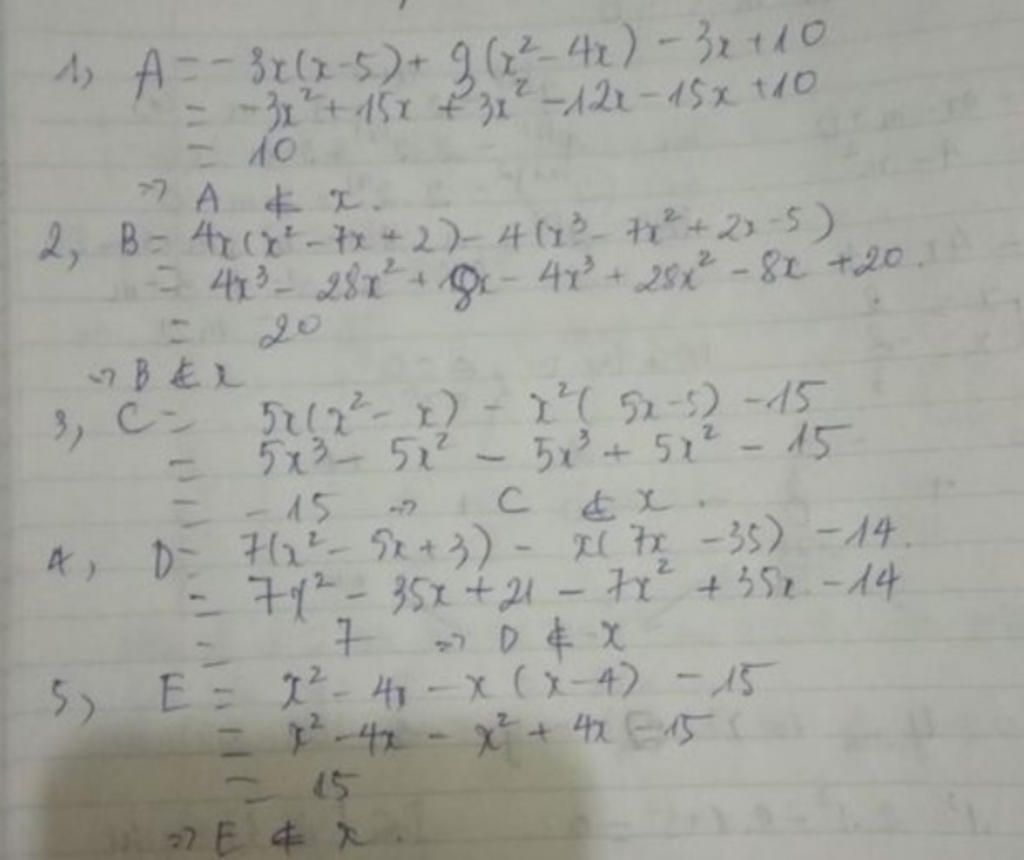 1, A = - 3x(x-5) + 3(x² - 4x) - 3x + 10
= -3x² + 15x + 3x² - 12x - 15x + 10
= 10
=> A ∉ x.
2, B = 4x(x² - 7x + 2) - 4(x³ - 7x² + 2x - 5)
= 4x³ - 28x² + 8x - 4x³ + 28x² - 8x + 20.
= 20
=> B ∉ x
3, C = 5x(x² - x) - x²(5x - 5) - 15
= 5x³ - 5x² - 5x³ + 5x² - 15
= - 15 => C ∉ x.
4, D = 7(x² - 5x + 3) - x(7x - 35) - 14.
= 7x² - 35x + 21 - 7x² + 35x - 14
= 7 => D ∉ x
5, E = x² - 4x - x(x - 4) - 15
= x² - 4x - x² + 4x - 15
= 15
=> E ∉ x.